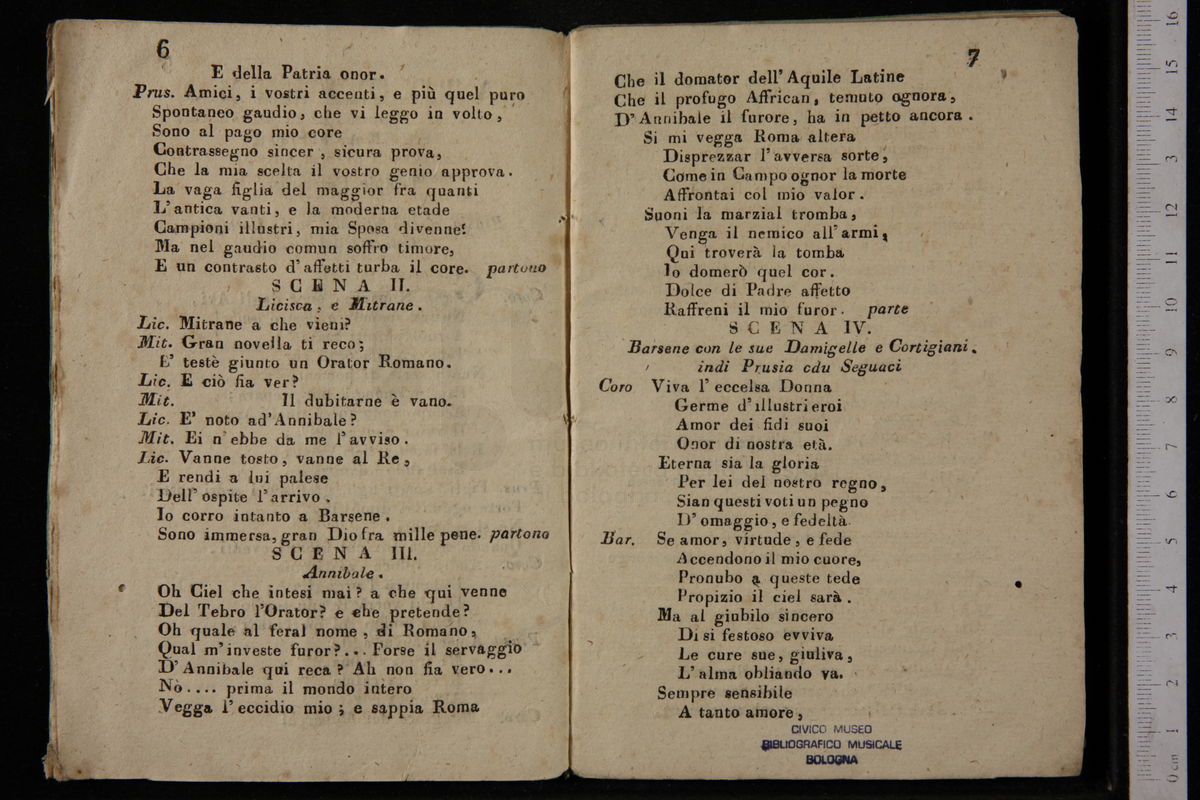 6
E della Patria onor.
Prus. Amici, i vostri accenti, e più quel puro
Spontaneo gaudio, che vi leggo in volto,
Sono al pago mio core
Contrassegno sincer, sicura prova,
Che la mia scelta il vostro genio approva.
La vaga figlia del maggior fra quanti
L'antica vanti, e la moderna etade
Campioni illustri, mia Sposa divenne!
Ma nel gaudio comun soffro timore,
E un contrasto d'affetti turba il core. partono
SCENA II.
Licisca, e Mitrane.
Lic. Mitrane a che vieni?
Mit. Gran novella ti reco;
E' testè giunto un Orator Romano.
Lic. E ciò fia ver?
Mit. Il dubitarne è vano.
Lic. E' noto ad'Annibale?
Mit. Ei n'ebbe da me l'avviso.
Lic. Vanne tosto, vanne al Re,
E rendi a lui palese
Dell' ospite l'arrivo.
Io corro intanto a Barsene.
Sono immersa, gran Dio fra mille pene. partono
SCENA III.
Annibale.
Oh Ciel che intesi mai? a che qui venne
Del Tebro l'Orator? e che pretende?
Oh quale al feral nome, di Romano,
Qual m'investe furor?... Forse il servaggio
D'Annibale qui reca? Ah non fia vero...
Nò.... prima il mondo intero
Vegga l'eccidio mio; e sappia Roma
7
Che il domator dell'Aquile Latine
Che il profugo Affrican, temuto ognora,
D'Annibale il furore, ha in petto ancora.
Si mi vegga Roma altera
Disprezzar l'avversa sorte,
Come in Campo ognor la morte
Affrontai col mio valor.
Suoni la marzial tromba,
Venga il nemico all'armi,
Qui troverà la tomba
Io domerò quel cor.
Dolce di Padre affetto
Raffreni il mio furor. parte
SCENA IV.
Barsene con le sue Damigelle e Cortigiani.
indi Prusia cdu Seguaci
Coro Viva l'eccelsa Donna
Germe d'illustri eroi
Amor dei fidi suoi
Onor di nostra età.
Eterna sia la gloria
Per lei del nostro regno,
Sian questi voti un pegno
D'omaggio, e fedeltà.
Bar. Se amor, virtude, e fede
Accendono il mio cuore,
Pronubo a queste tede
Propizio il ciel sarà.
Ma al giubilo sincero
Di si festoso evviva
Le cure sue, giuliva,
L'alma obliando va.
Sempre sensibile
A tanto amore,
CIVICO MUSEO
BIBLIOGRAFICO MUSICALE
BOLOGNA
0 cm 1 2 3 4 5 6 7 8 9 10 11 12 13 14 15 16